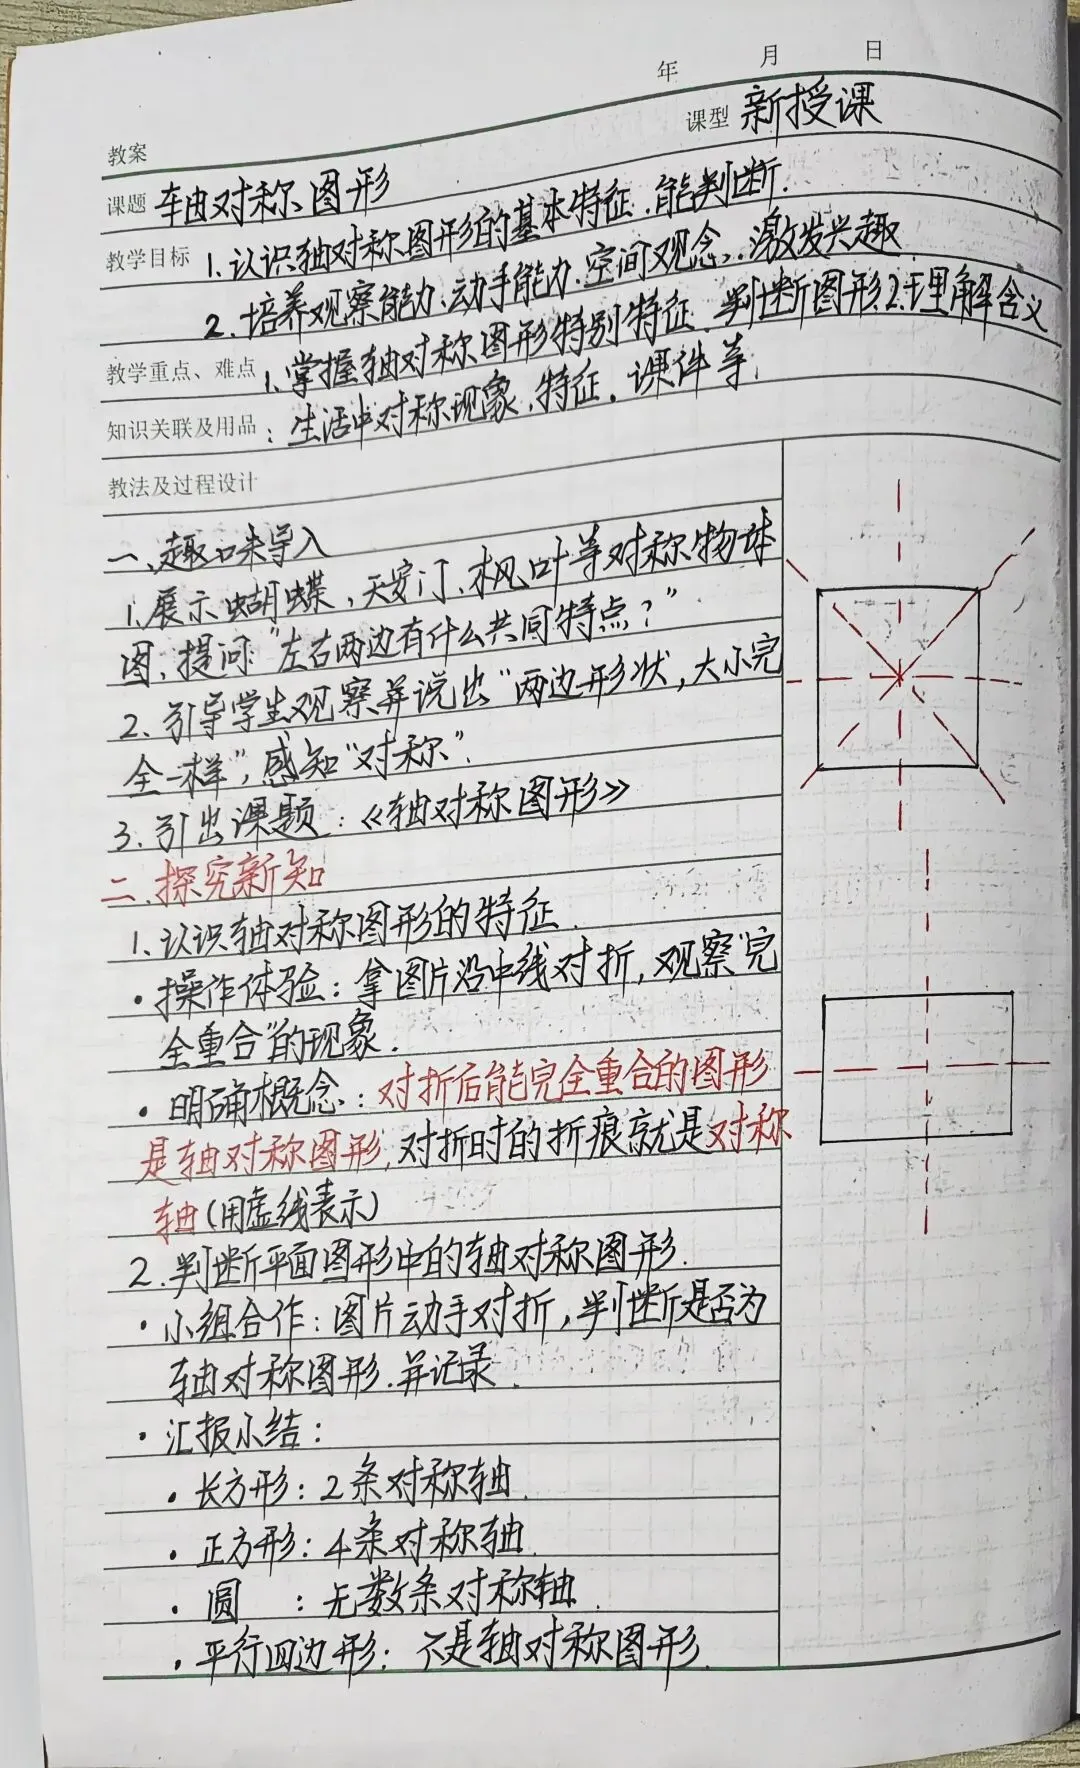 年 月 日
教案 课型 新授课
课题 轴对称图形
教学目标 1.认识轴对称图形的基本特征.能判断.
2.培养观察能力.动手能力.空间观念.激发兴趣
教学重点、难点 1.掌握轴对称图形特别特征.判断图形.2.理解含义
知识关联及用品：生活中对称现象.特征.课件等.
教法及过程设计
一.趣味导入
1.展示蝴蝶,天安门.枫叶等对称物体
图,提问:"左右两边有什么共同特点?"
2.引导学生观察并说出"两边形状,大小完
全一样",感知"对称".
3.引出课题:《轴对称图形》
二.探究新知
1.认识轴对称图形的特征.
·操作体验:拿图片沿中线对折,观察"完
全重合"的现象.
·明确概念:对折后能完全重合的图形
是轴对称图形,对折时的折痕就是对称
轴(用虚线表示)
2.判断平面图形中的轴对称图形.
·小组合作:图片动手对折,判断是否为
轴对称图形.并记录.
·汇报小结:
·长方形:2条对称轴.
·正方形:4条对称轴.
·圆 :无数条对称轴.
·平行四边形:不是轴对称图形.